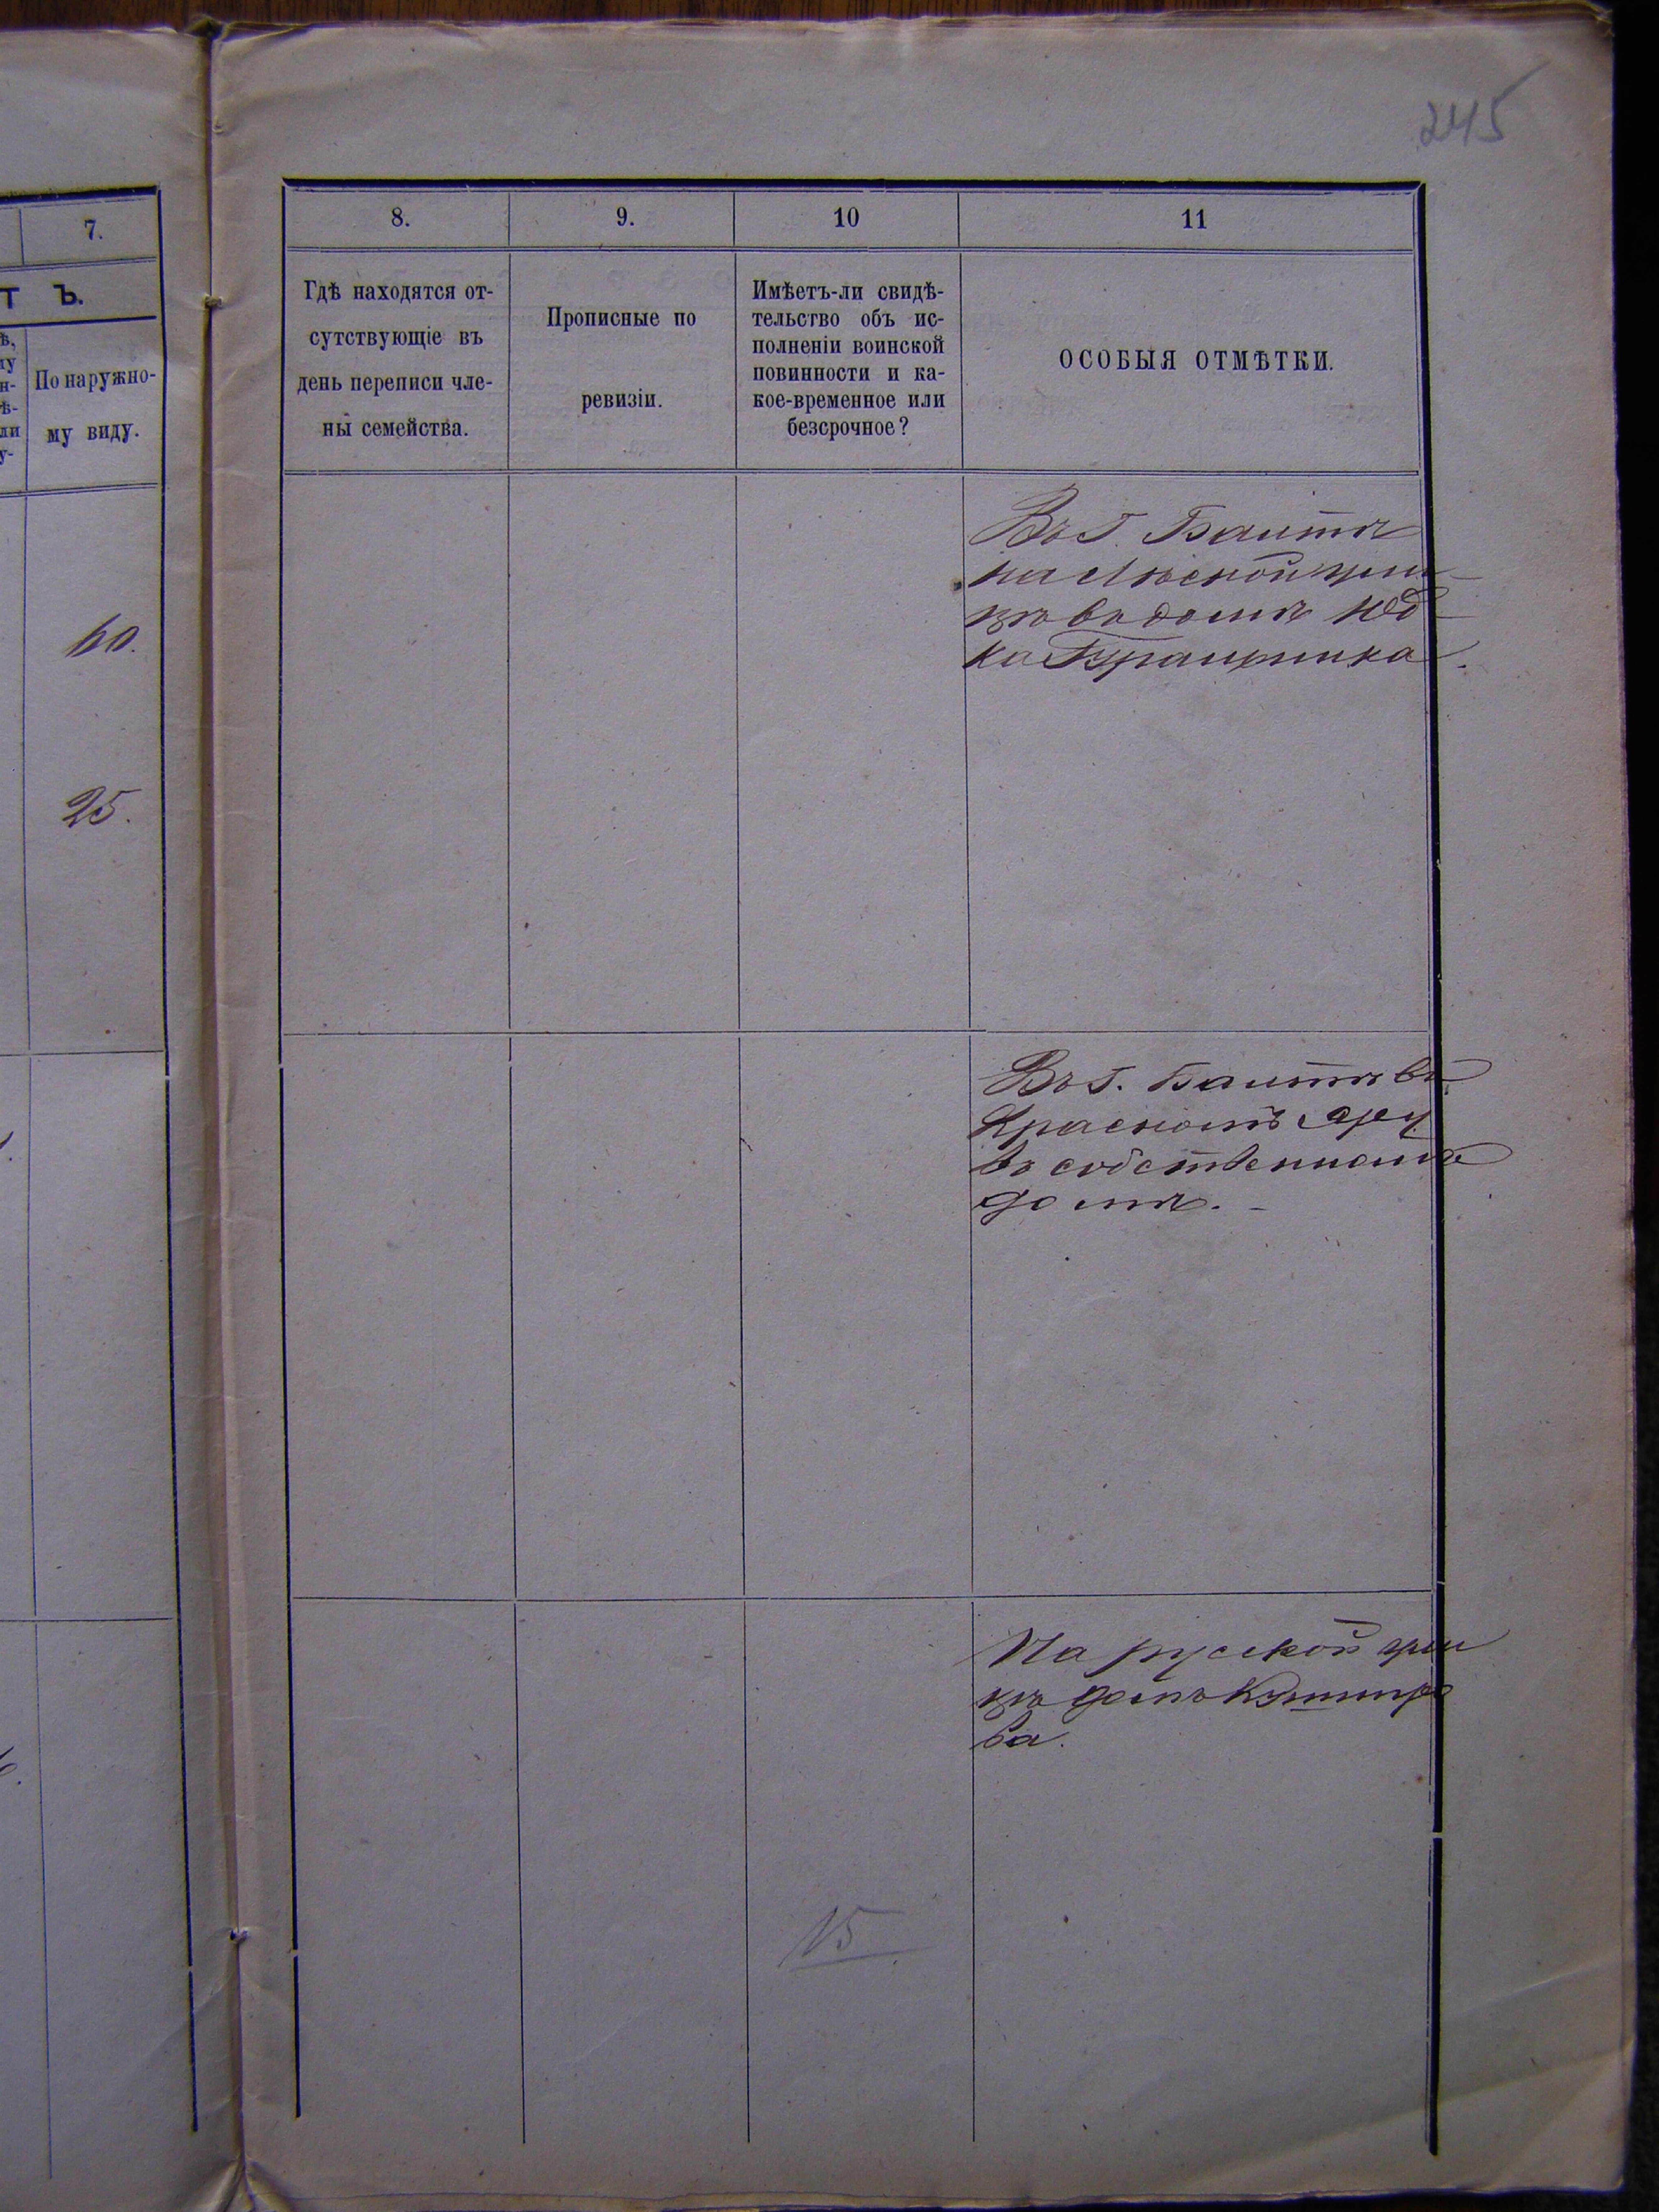 245
7.
Т Ъ.
По наружно-
му виду.
60.
25.
8.
9.
10
11
Гдѣ находятся от-
сутствующіе въ
день переписи чле-
ны семейства.
Прописные по
ревизіи.
Имѣетъ-ли свидѣ-
тельство объ ис-
полненіи воинской
повинности и ка-
кое-временное или
безсрочное?
ОСОБЫЯ ОТМѢТКИ.
Въ г. Балтѣ
на ули-
цѣ въ домѣ Юд-
ка
Въ г. Балтѣ въ
Красномъ Яру
въ собственномъ
домѣ. -
На русской ули
цѣ домъ
ва.
15